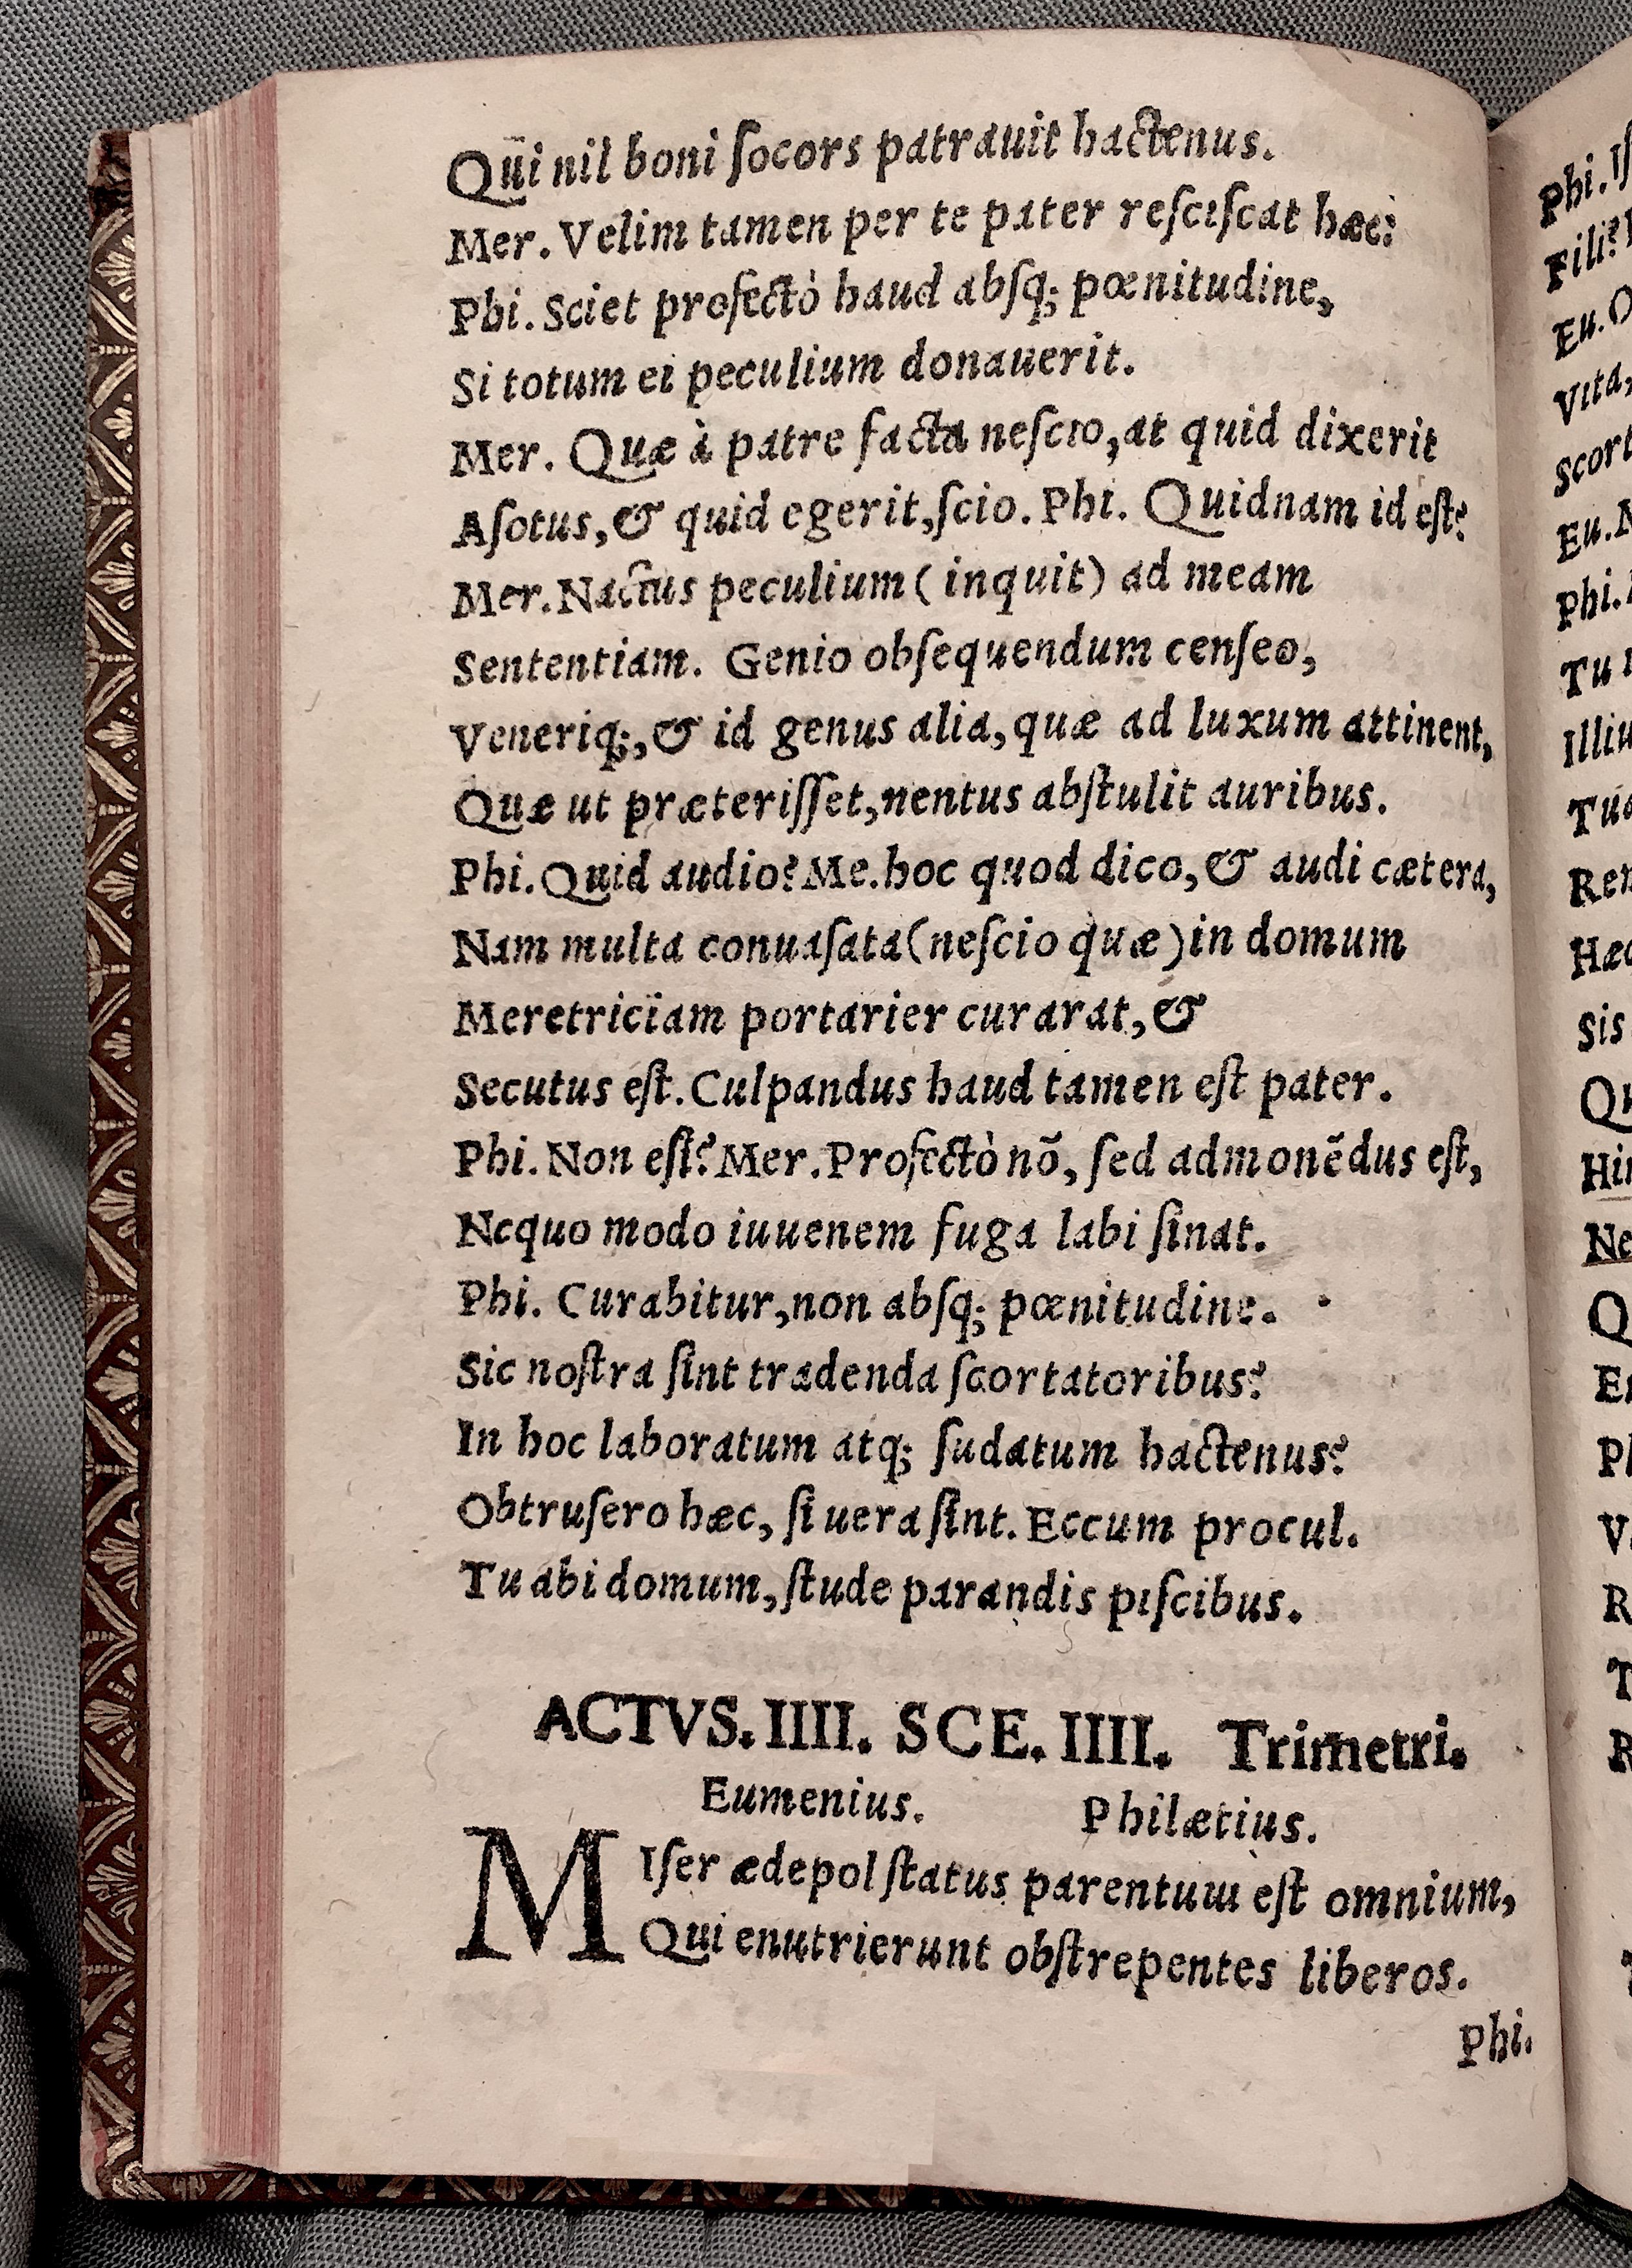 Qui nil boni ſocors patrauit hactenus.
Mer. Velim tamen per te pater reſciſcat hæc:
Phi. Sciet profectò haud abſq; pœnitudine,
Si totum ei peculium donauerit.
Mer. Quæ à patre facta neſcio, at quid dixerit
Aſotus, & quid egerit, ſcio. Phi. Quidnam id eſt?
Mer. Nactus peculium ( inquit) ad meam
Sententiam. Genio obſequendum cenſeo,
Veneriq;, & id genus alia, quæ ad luxum attinent,
Quæ ut præteriſſet, uentus abſtulit auribus.
Phi. Quid audio? Me. hoc quod dico, & audi cætera,
Nam multa conuaſata (neſcio quæ) in domum
Meretriciam portarier curarat, &
Secutus eſt. Culpandus haud tamen eſt pater.
Phi. Non eſt? Mer. Profectò nõ, ſed admonẽdus eſt,
Nequo modo iuuenem fuga labi ſinat.
Phi. Curabitur, non abſq; pœnitudine.
Sic noſtra ſint tradenda ſcortatoribus?
In hoc laboratum atq; ſudatum hactenus?
Obtruſero hæc, ſi uera ſint. Eccum procul.
Tu abi domum, ſtude parandis piſcibus.
ACTVS. IIII. SCE. IIII. Trimetri.
Eumenius. Philætius.
MIſer ædepol ſtatus parentum eſt omnium,
Qui enutrierunt obſtrepentes liberos.
Phi.